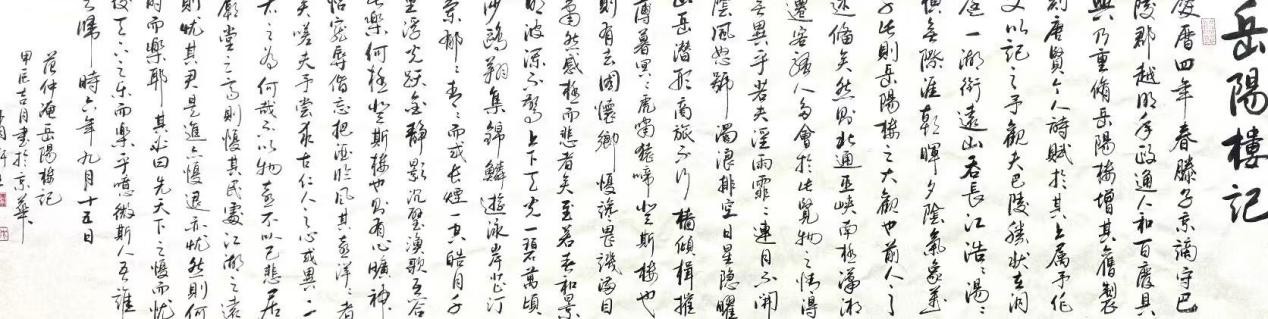 岳陽樓記
慶曆四年春滕子京謫守巴
陵郡越明年政通人和百廢具
興乃重脩岳陽樓增其舊製
刻唐賢今人詩賦於其上属予作
文以記之予觀夫巴陵勝狀在洞
庭一湖銜遠山吞長江浩々湯々
橫無際涯朝暉夕陰氣象萬
千此則岳陽樓之大觀也前人之
述備矣然則北通巫峽南極瀟湘
遷客騷人多會於此覽物之情得
無異乎若夫淫雨霏々連月不開
陰風怒號濁浪排空日星隱曜
山岳潛形商旅不行檣傾楫摧
薄暮冥々虎嘯猿啼登斯樓也
則有去國懷鄉憂讒畏譏滿目
蕭然感極而悲者矣至若春和景
明波瀾不驚上下天光一碧萬頃
沙鷗翔集錦鱗遊泳岸芷汀
蘭郁々青々而或長煙一空皓月千
里浮光躍金靜影沉璧漁歌互答
此樂何極登斯樓也則有心曠神
怡寵辱偕忘把酒临風其喜洋々者
矣嗟夫予嘗求古仁人之心或異二
者之為何哉不以物喜不以己悲居
廟堂之高則憂其民處江湖之遠
則忧其君是進亦憂退亦忧然則何
時而樂耶其必曰先天下之憂而忧
後天下之樂而樂乎噫微斯人吾誰
與歸時六年九月十五日
范仲淹岳陽樓記
甲辰吉月書於京華